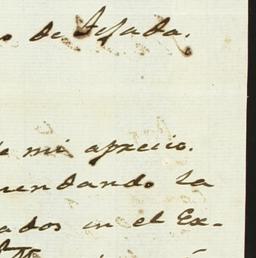 o de Tejada.
de mi aprecio.
mendando la
ados en el Ex-